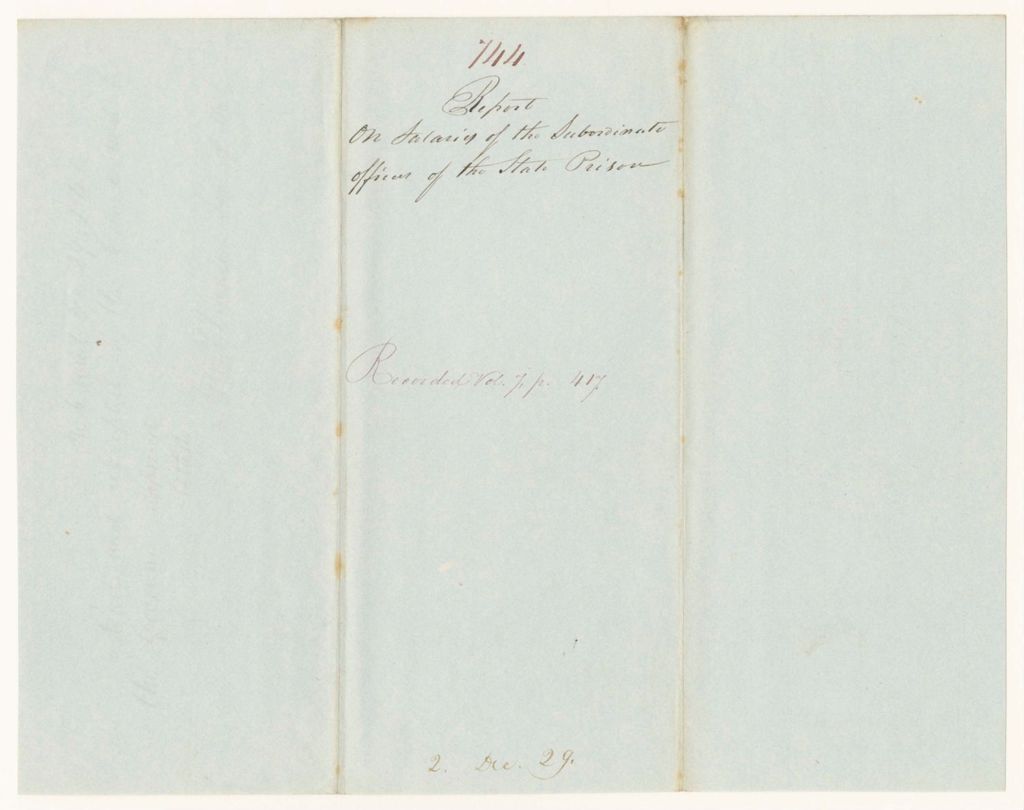 744
Report
On Salaries of the Subordinate
officers of the State Prison
Recorded Vol. 7, p. 417
2. Dec. 29.